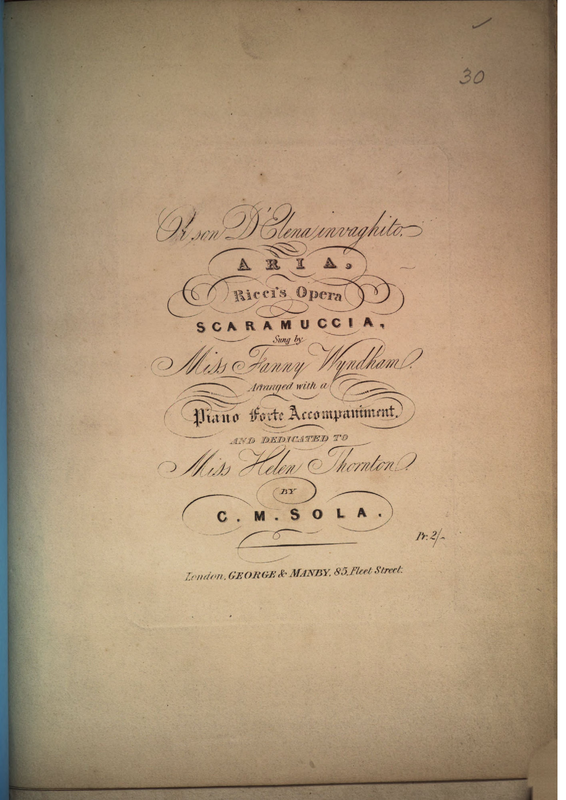 30
Or son D'Elena invaghito.
ARIA,
Ricci's Opera
SCARAMUCCIA,
Sung by
Miss Fanny Wyndham.
Arranged with a
Piano Forte Accompaniment,
AND DEDICATED TO
Miss Helen Thornton.
BY
C. M. SOLA.
Pr. 2/-
London, GEORGE & MANBY, 85, Fleet Street.